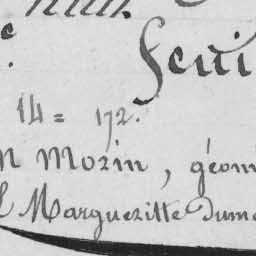 feui
14 = 172.
n Morin, géom
Margueritte Dum